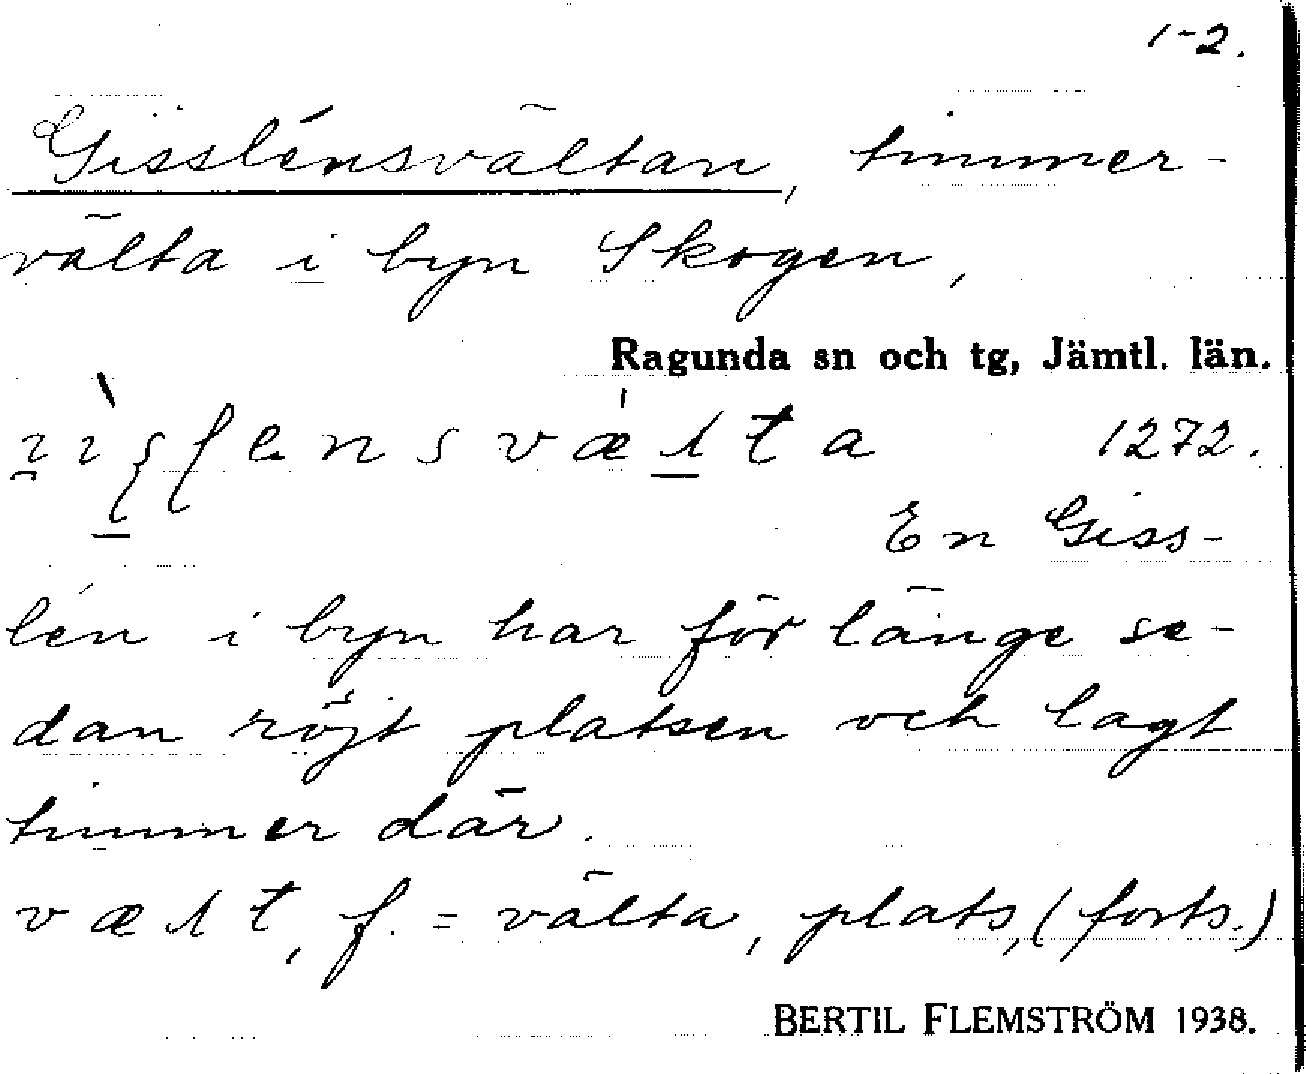 1-2.
Gisslénsvältan, timmer-
välta i byn Skogen,
Ragunda sn och tg, Jämtl. län.
1272.
En Giss-
lén i byn har för länge se-
dan röjt platsen och lagt
timmer där.
væלt, f. = välta, plats, (forts.)
BERTIL FLEMSTRÖM 1938.